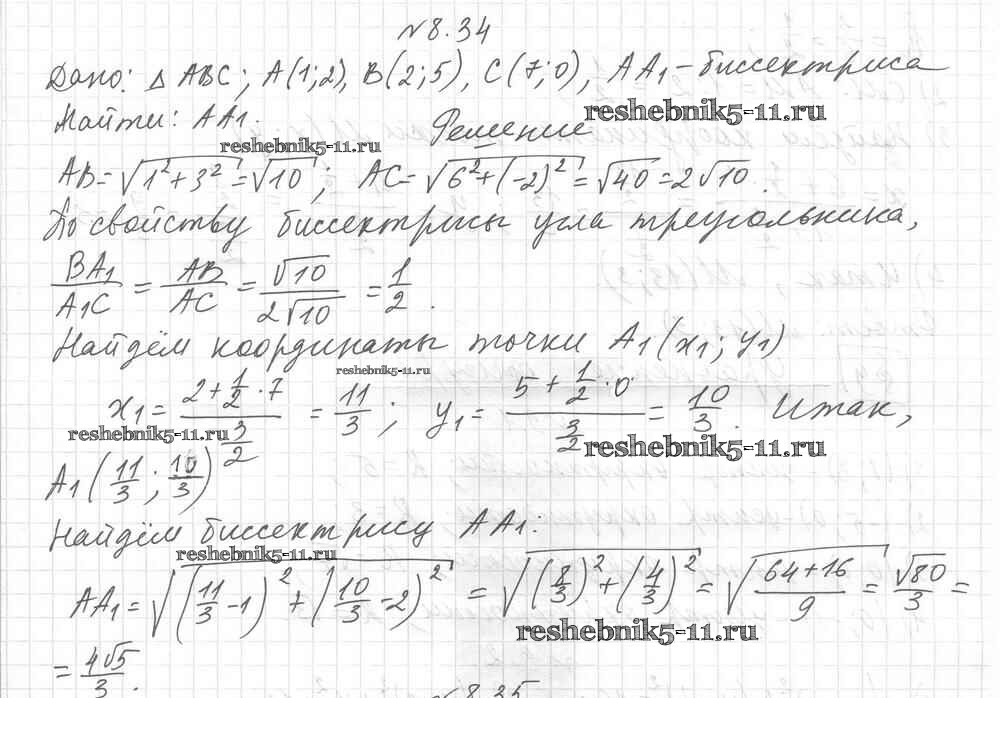 №8.34
Дано: △ ABC; A(1;2), B(2;5), C(7;0), AA₁-биссектриса
reshebnik5-11.ru
Найти: AA₁.
reshebnik5-11.ru
Решение
AB=√(1²+3²)=√10; AC=√(6²+(-2)²)=√40=2√10.
По свойству биссектрисы угла треугольника,
BA₁/A₁C = AB/AC = √10/2√10 = 1/2.
Найдём координаты точки A₁(x₁; y₁)
reshebnik5-11.ru
x₁= (2+1/2·7)/(3/2) = 11/3; y₁= (5+1/2·0)/(3/2) = 10/3. Итак,
reshebnik5-11.ru
reshebnik5-11.ru
A₁(11/3; 10/3)
Найдём биссектрису AA₁:
reshebnik5-11.ru
AA₁=√((11/3-1)²+(10/3-2)²) = √((8/3)²+(4/3)²) = √((64+16)/9) = √80/3 =
reshebnik5-11.ru
= 4√5/3.
№8.35